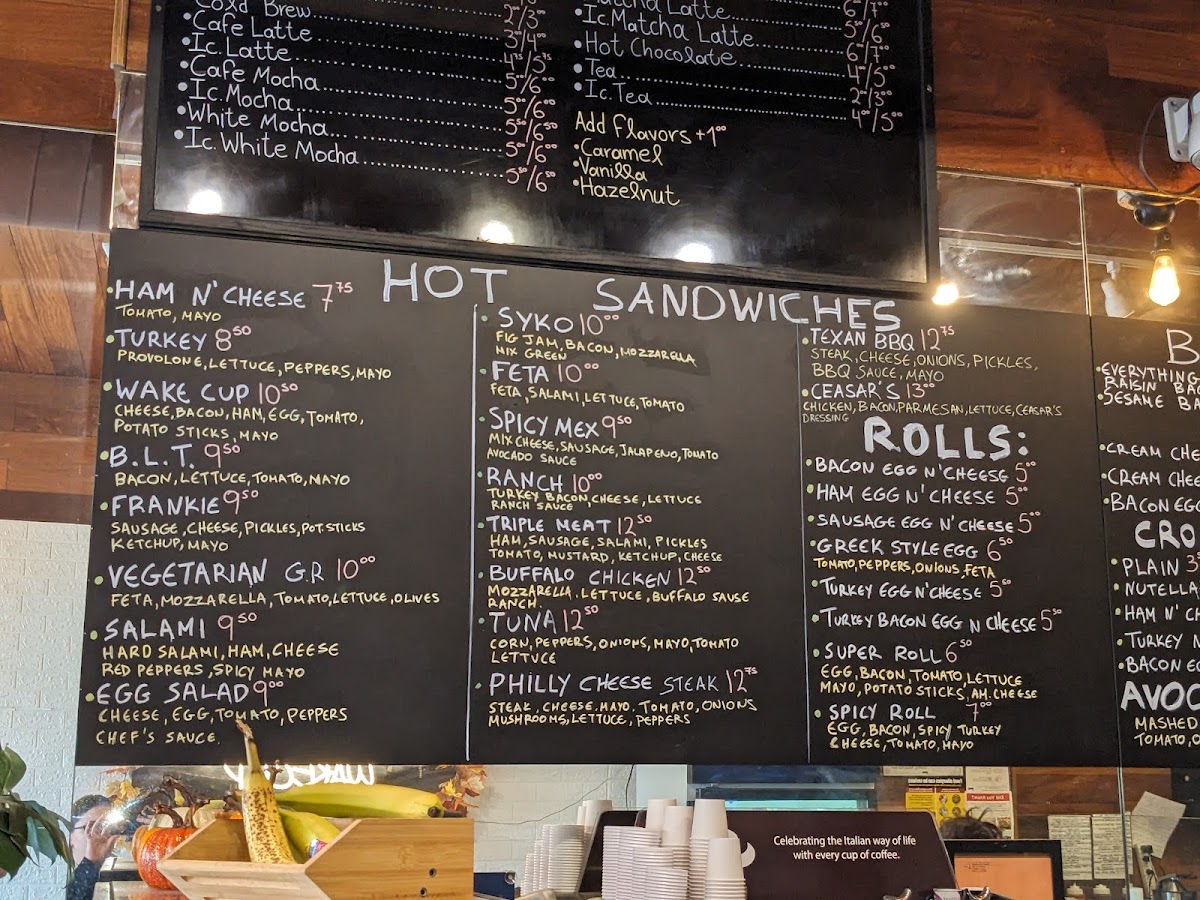 Cold Brew 3⁰⁰/4⁰⁰
• Cafe Latte
• Ic. Latte
• Cafe Mocha
• Ic. Mocha
• White Mocha
• Ic. White Mocha 5⁵⁰/6⁵⁰
Matcha Latte
• Ic. Matcha Latte
• Hot Chocolate
• Tea
• Ic. Tea 4⁰⁰/5⁰⁰
Add Flavors +1⁰⁰
• Caramel
• Vanilla
• Hazelnut
HOT SANDWICHES
• HAM N' CHEESE 7⁷⁵
TOMATO, MAYO
• TURKEY 8⁵⁰
PROVOLONE, LETTUCE, PEPPERS, MAYO
• WAKE CUP 10⁵⁰
CHEESE, BACON, HAM, EGG, TOMATO,
POTATO STICKS, MAYO
• B.L.T. 9⁵⁰
BACON, LETTUCE, TOMATO, MAYO
• FRANKIE 9⁵⁰
SAUSAGE, CHEESE, PICKLES, POT.STICKS
KETCHUP, MAYO
• VEGETARIAN G.R 10⁰⁰
FETA, MOZZARELLA, TOMATO, LETTUCE, OLIVES
• SALAMI 9⁵⁰
HARD SALAMI, HAM, CHEESE
RED PEPPERS, SPICY MAYO
• EGG SALAD 9⁰⁰
CHEESE, EGG, TOMATO, PEPPERS
CHEF'S SAUCE.
• SYKO 10⁰⁰
FIG JAM, BACON, MOZZARELLA
MIX GREEN
• FETA 10⁰⁰
FETA, SALAMI, LETTUCE, TOMATO
• SPICY MEX 9⁵⁰
MIX CHEESE, SAUSAGE, JALAPENO, TOMATO
AVOCADO SAUCE
• RANCH 10⁰⁰
TURKEY BACON, CHEESE, LETTUCE
RANCH SAUCE
• TRIPLE MEAT 12⁵⁰
HAM, SAUSAGE, SALAMI, PICKLES
TOMATO, MUSTARD, KETCHUP, CHEESE
• BUFFALO CHICKEN 12⁵⁰
MOZZARELLA. LETTUCE, BUFFALO SAUSE
RANCH.
• TUNA 12⁵⁰
CORN, PEPPERS, ONIONS, MAYO, TOMATO
LETTUCE
• PHILLY CHEESE STEAK 12⁷⁵
STEAK, CHEESE. MAYO. TOMATO, ONIONS
MUSHROOMS, LETTUCE, PEPPERS
• TEXAN BBQ 12⁷⁵
STEAK, CHEESE, ONIONS, PICKLES,
BBQ SAUCE, MAYO
• CEASAR'S 13⁰⁰
CHICKEN, BACON, PARMESAN, LETTUCE, CEASAR'S
DRESSING
ROLLS:
• BACON EGG N' CHEESE 5⁰⁰
• HAM EGG N' CHEESE 5⁰⁰
• SAUSAGE EGG N' CHEESE 5⁰⁰
• GREEK STYLE EGG 6⁵⁰
TOMATO, PEPPERS, ONIONS, FETA
• TURKEY EGG N' CHEESE 5⁵⁰
• TURKEY BACON EGG N CHEESE 5⁵⁰
• SUPER ROLL 6⁵⁰
EGG, BACON, TOMATO, LETTUCE
MAYO, POTATO STICKS, AM. CHEESE
• SPICY ROLL 7⁰⁰
EGG, BACON, SPICY TURKEY
CHEESE, TOMATO, MAYO
B
• EVERYTHING
RAISIN BAG
• SESAME BA
• CREAM CHE
• CREAM CHEE
• BACON EGG
CRO
• PLAIN 3
• NUTELLA
• HAM N' CH
• TURKEY N
• BACON EG
AVOC
MASHED
TOMATO, O
Celebrating the Italian way of life
with every cup of coffee.